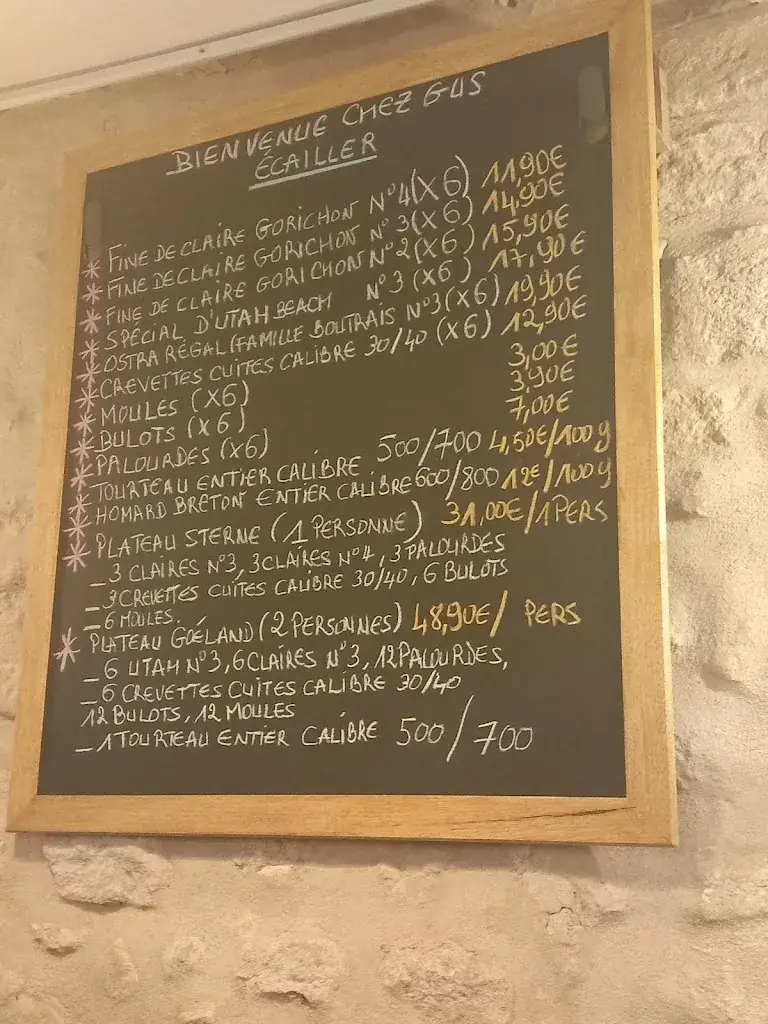 BIENVENUE CHEZ GUS
ÉCAILLER
* FINE DE CLAIRE GORICHON N°4(X6) 11,90€
* FINE DE CLAIRE GORICHON N°3(X6) 14,90€
* FINE DE CLAIRE GORICHON N°2(X6) 15,90€
* SPÉCIAL D'UTAH BEACH N°3 (X6) 17,90€
* OSTRA RÉGAL(FAMILLE BOUTRAIS N°3(X6) 19,90€
* CREVETTES CUITES CALIBRE 30/40 (X6) 12,90€
* MOULES (X6) 3,00€
* BULOTS (X6) 3,90€
* PALOURDES (X6) 7,00€
* TOURTEAU ENTIER CALIBRE 500/700 4,50€/100g
* HOMARD BRETON ENTIER CALIBRE 600/800 12€/100g
* PLATEAU STERNE (1 PERSONNE) 31,00€/1PERS
_ 3 CLAIRES N°3, 3 CLAIRES N°4, 3 PALOURDES
_ 3 CREVETTES CUITES CALIBRE 30/40, 6 BULOTS
_ 6 MOULES.
* PLATEAU GOÉLAND (2 PERSONNES) 48,90€/ PERS
_ 6 UTAH N°3, 6 CLAIRES N°3, 12 PALOURDES,
_ 6 CREVETTES CUITES CALIBRE 30/40
12 BULOTS, 12 MOULES
_ 1 TOURTEAU ENTIER CALIBRE 500/700